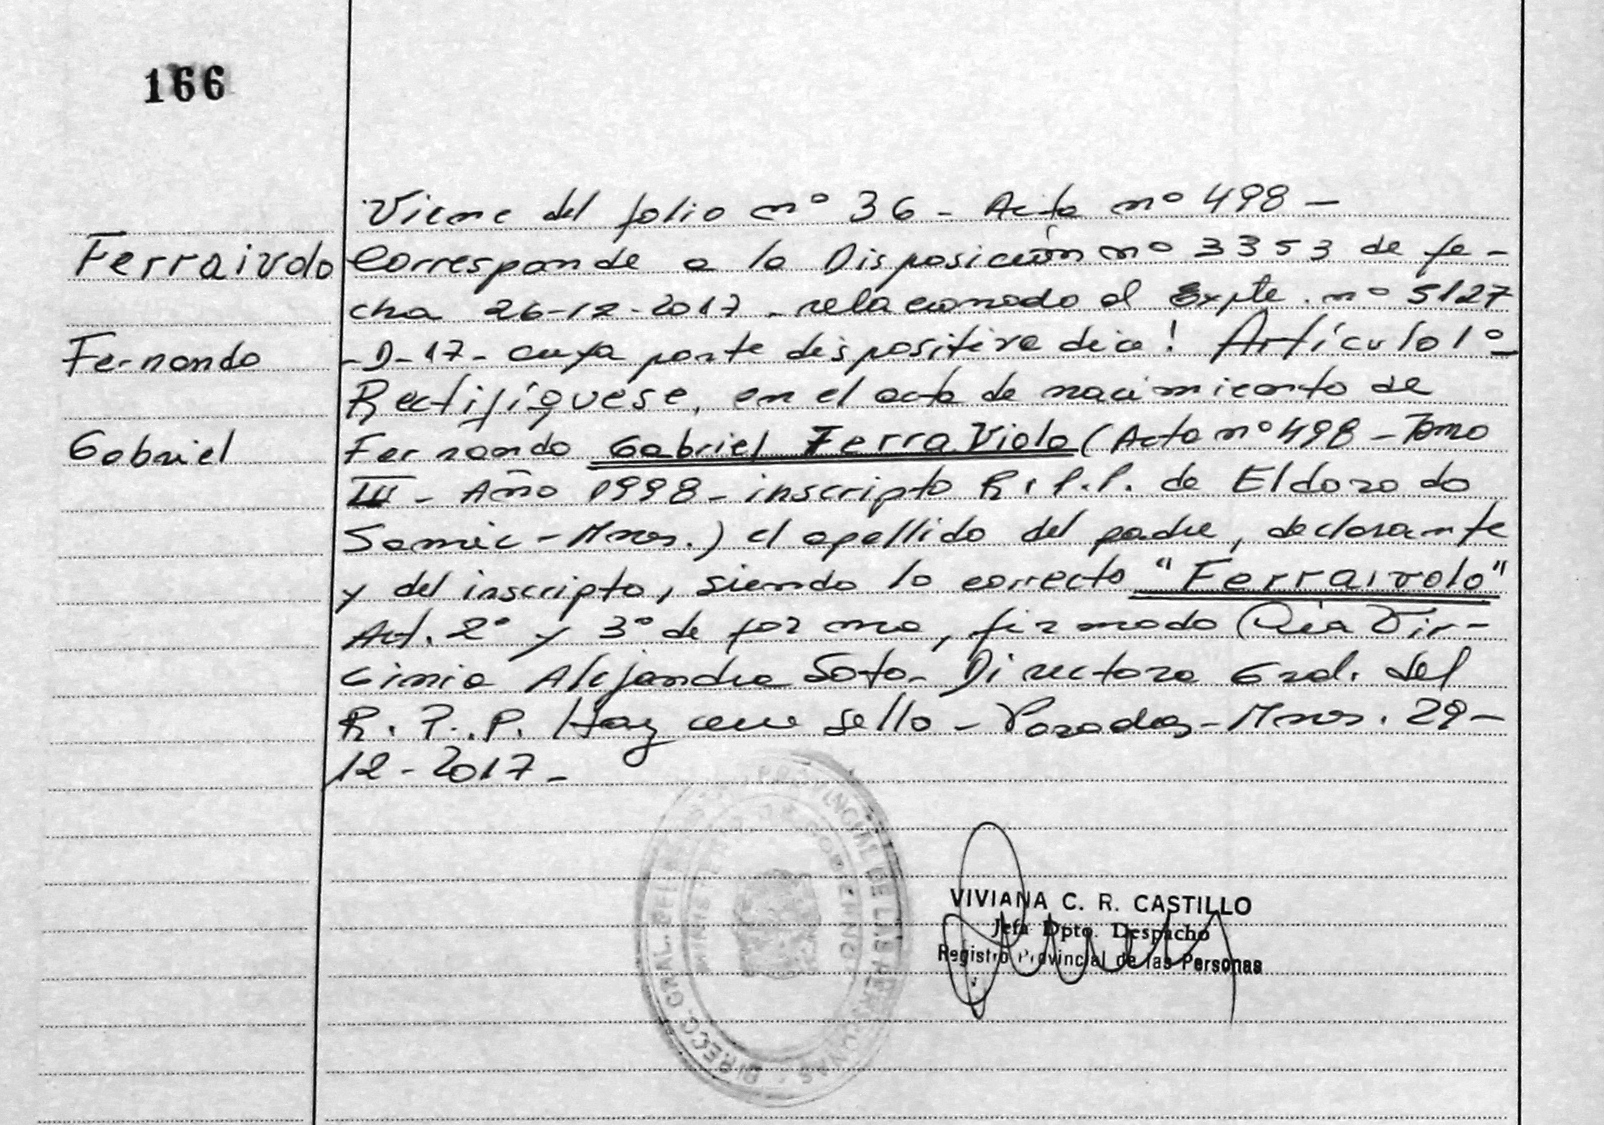 166
Viene del folio nº 36 - Acta nº 498 -
Ferraivolo
Corresponde a la Disposición nº 3353 de fe-
cha 26-12-2017 - relacionado al Expte. nº 5127
Fernando
- D-17 - cuya parte dispositiva dice: Artículo 1º
Rectifíquese, en el acta de nacimiento de
Gabriel
Fernando Gabriel FerraViolo (Acta nº 498 - Tomo
III - Año 1998 - inscripto R.P.P. de Eldorado
Samic - Mnes.) el apellido del padre, declarante
y del inscripto, siendo lo correcto "Ferraivolo"
Art. 2º y 3º de forma, firmado Dra Vir-
ginia Alejandra Soto - Directora Gral. del
R.P.P. Hay un sello - Posadas - Mnes. 29-
12-2017 -
DIRECC. GRAL. DEL REG. PROVINCIAL DE LAS PERSONAS
MINISTERIO DE GOBIERNO
VIVIANA C. R. CASTILLO
Jefa Dpto. Despacho
Registro Provincial de las Personas